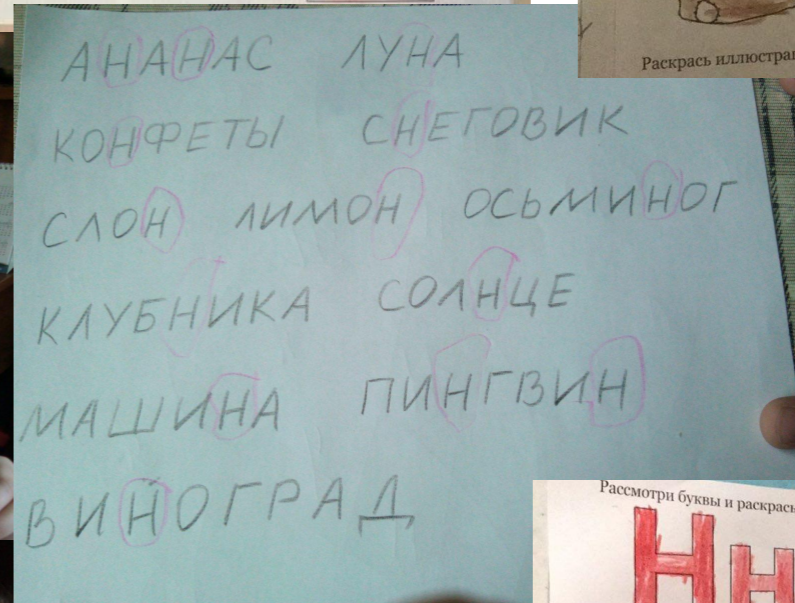 Раскрась иллюстра
АНАНАС ЛУНА
КОНФЕТЫ СНЕГОВИК
СЛОН ЛИМОН ОСЬМИНОГ
КЛУБНИКА СОЛНЦЕ
МАШИНА ПИНГВИН
ВИНОГРАД
Рассмотри буквы и раскрась
Н н